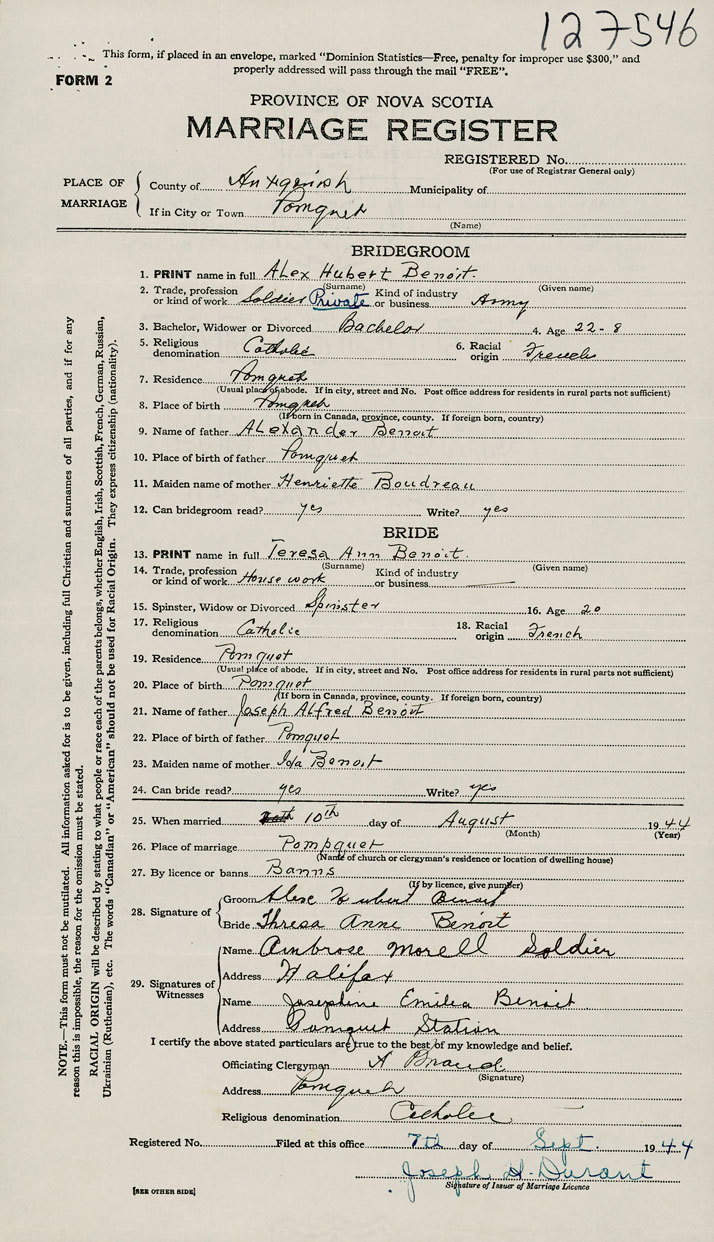 127546
This form, if placed in an envelope, marked “Dominion Statistics—Free, penalty for improper use $300,” and
properly addressed will pass through the mail “FREE”.
FORM 2
PROVINCE OF NOVA SCOTIA
MARRIAGE REGISTER
REGISTERED No.
(For use of Registrar General only)
PLACE OF MARRIAGE
County of Antigonish Municipality of
If in City or Town Pomquet
(Name)
BRIDEGROOM
1. PRINT name in full Alex Hubert Benoit.
(Surname) (Given name)
2. Trade, profession or kind of work Soldier Private Kind of industry or business Army
3. Bachelor, Widower or Divorced Bachelor 4. Age 22-8
5. Religious denomination Catholic 6. Racial origin French
7. Residence Pomquet
(Usual place of abode. If in city, street and No. Post office address for residents in rural parts not sufficient)
8. Place of birth Pomquet
(If born in Canada, province, county. If foreign born, country)
9. Name of father Alexander Benoit
10. Place of birth of father Pomquet
11. Maiden name of mother Henriette Boudreau
12. Can bridegroom read? yes Write? yes
BRIDE
13. PRINT name in full Teresa Ann Benoit.
(Surname) (Given name)
14. Trade, profession or kind of work House work Kind of industry or business
15. Spinster, Widow or Divorced Spinster 16. Age 20
17. Religious denomination Catholic 18. Racial origin French
19. Residence Pomquet
(Usual place of abode. If in city, street and No. Post office address for residents in rural parts not sufficient)
20. Place of birth Pomquet
(If born in Canada, province, county. If foreign born, country)
21. Name of father Joseph Alfred Benoit
22. Place of birth of father Pomquet
23. Maiden name of mother Ida Benoit
24. Can bride read? yes Write? yes
25. When married 10th day of August 1944
(Month) (Year)
26. Place of marriage Pompquet
(Name of church or clergyman's residence or location of dwelling house)
27. By licence or banns Banns
(If by licence, give number)
28. Signature of
Groom Alex Hubert Benoit
Bride Thresa Anne Benoit
29. Signatures of Witnesses
Name Ambrose Morell Soldier
Address Halifax
Name Josephine Emilia Benoit
Address Pomquet Station
I certify the above stated particulars are true to the best of my knowledge and belief.
Officiating Clergyman A
(Signature)
Address Pomquet
Religious denomination Catholic
Registered No. Filed at this office 7th day of Sept. 1944
Joseph H. Durant
Signature of Issuer of Marriage Licence
[SEE OTHER SIDE]
NOTE.—This form must not be mutilated. All information asked for is to be given, including full Christian and surnames of all parties, and if for any
reason this is impossible, the reason for the omission must be stated.
RACIAL ORIGIN will be described by stating to what people or race each of the parents belongs, whether English, Irish, Scottish, French, German, Russian,
Ukrainian (Ruthenian), etc. The words “Canadian” or “American” should not be used for Racial Origin. They express citizenship (nationality).